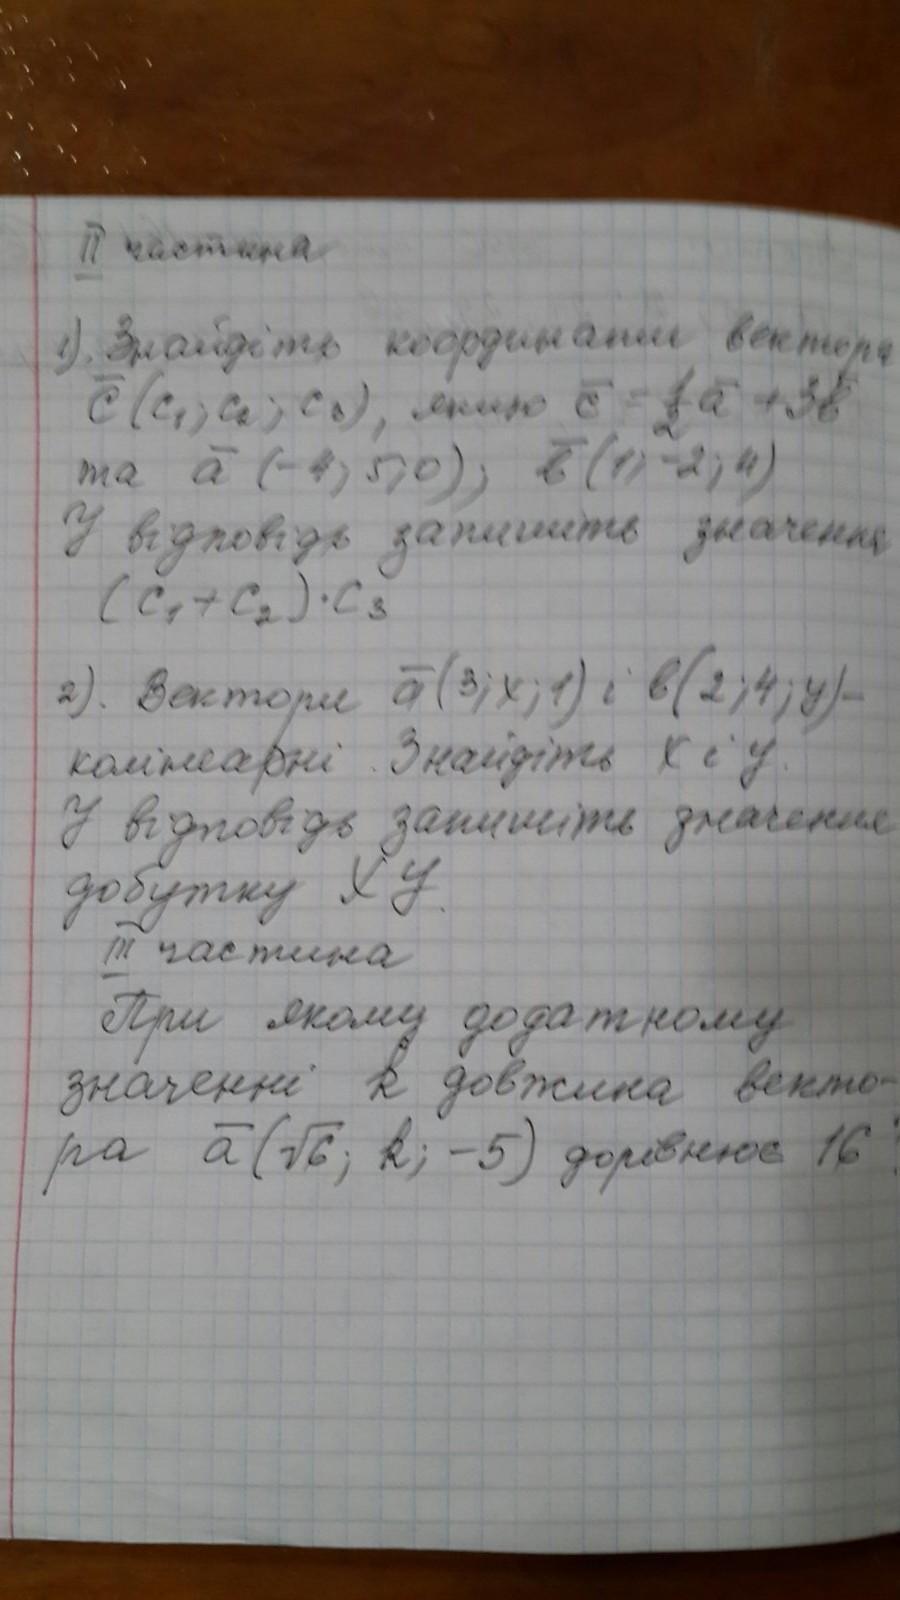 II частина
1). Знайдіть координати вектора
c̅ (c₁; c₂; c₃), якщо c̅ = ½a̅ + 3b̅
та a̅ (-4; 5; 0); b̅ (1; -2; 4)
У відповідь запишіть значення
(c₁ + c₂)·c₃
2). Вектори a̅ (3; x; 1) і b(2; 4; y) -
колінеарні. Знайдіть x і y.
У відповідь запишіть значення
добутку XY.
III частина
При якому додатному
значенні k довжина векто-
ра a̅ (√6; k; -5) дорівнює 16?